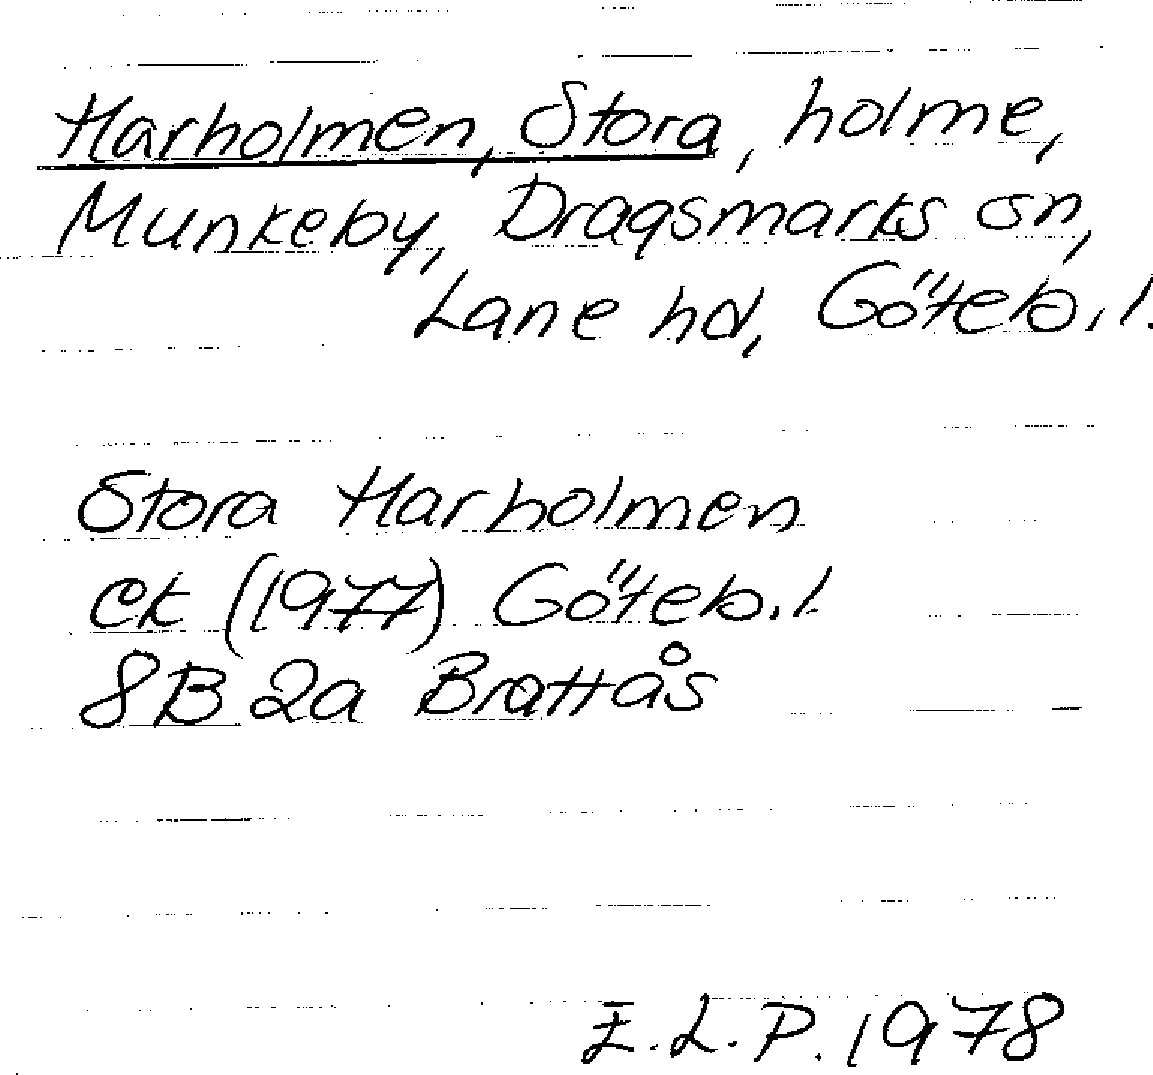 Harholmen, Stora, holme,
Munkeby, Dragsmarks sn,
Lane hd, Göteb. l.
Stora Harholmen
ek (1977) Göteb. l.
8B 2a Brattås
E.L.P. 1978